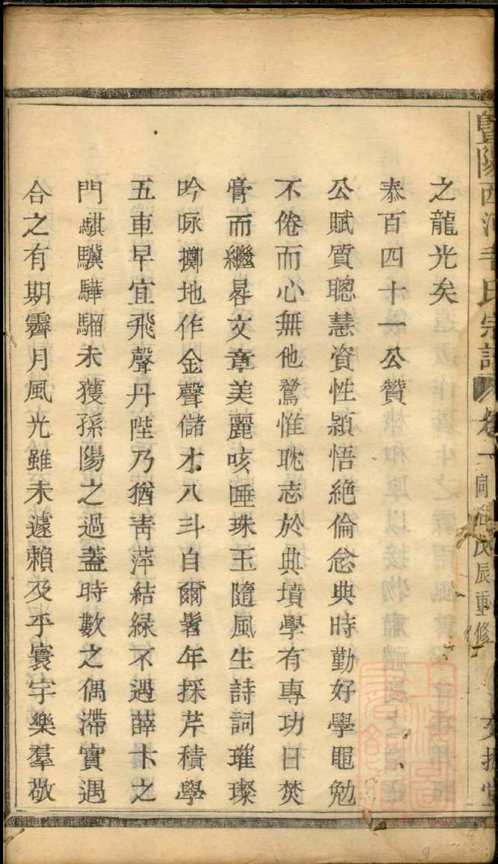 暨陽西河毛氏宗譜 卷 戊辰重修
之龍光矣
泰百四十一公贊
公賦質聰慧資性穎悟絕倫念典時勤好學黽勉
不倦而心無他騖惟耽志於典墳學有專功日焚
膏而繼晷文章美麗咳唾珠玉隨風生詩詞璀璨
吟咏擲地作金聲儲才八斗自爾髫年採芹積學
五車早宜飛聲丹陛乃猶靑萍結緑不遇薛卞之
門騏驥驊騮未獲孫陽之過蓋時數之偶滯實遇
合之有期霽月風光雖未遽賴及乎寰宇樂羣敬